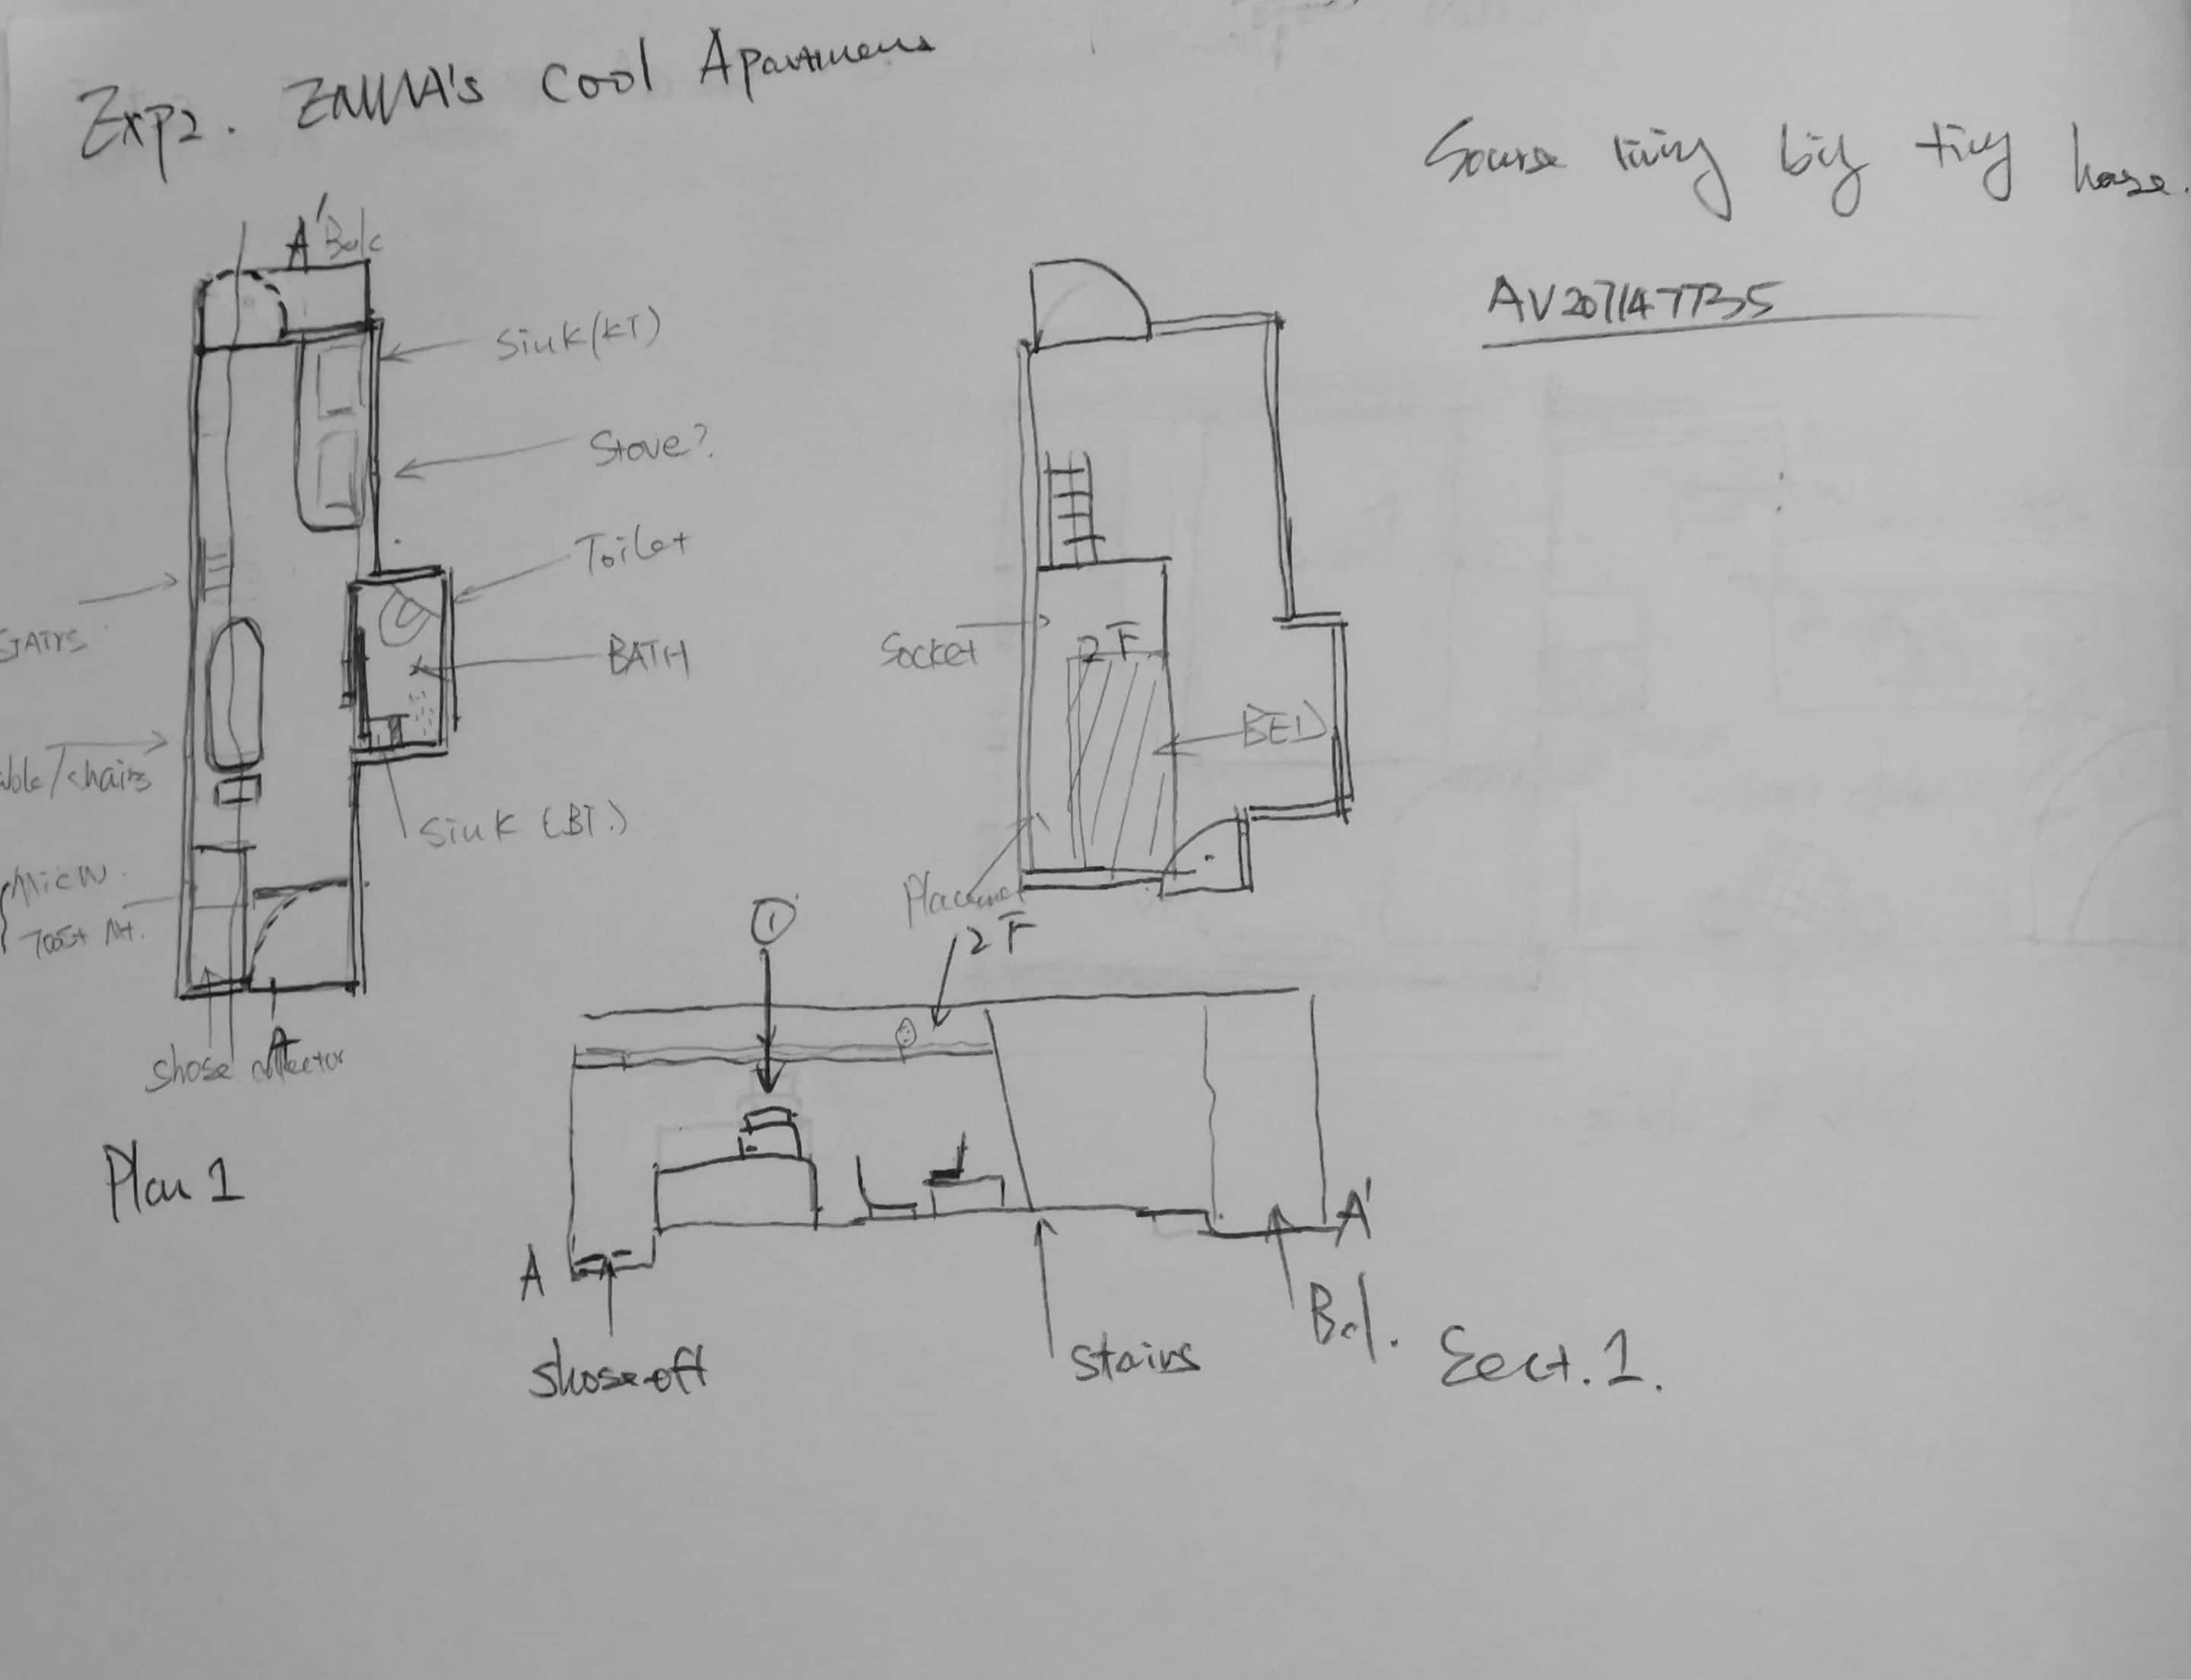 Exp2. EMMA's Cool Apartment
Sourse living big tiny hose.
AV207147735
A' Balc
Sink (KT)
Stove?
Toilet
BATH
Sink (BT.)
STAIRS
able/chairs
Micw.
Toast
shose collector
A
Plan 1
Socket
2F
BED
Placement
2F
1
A
A'
shose off
Stairs
Bal.
Sect. 1.